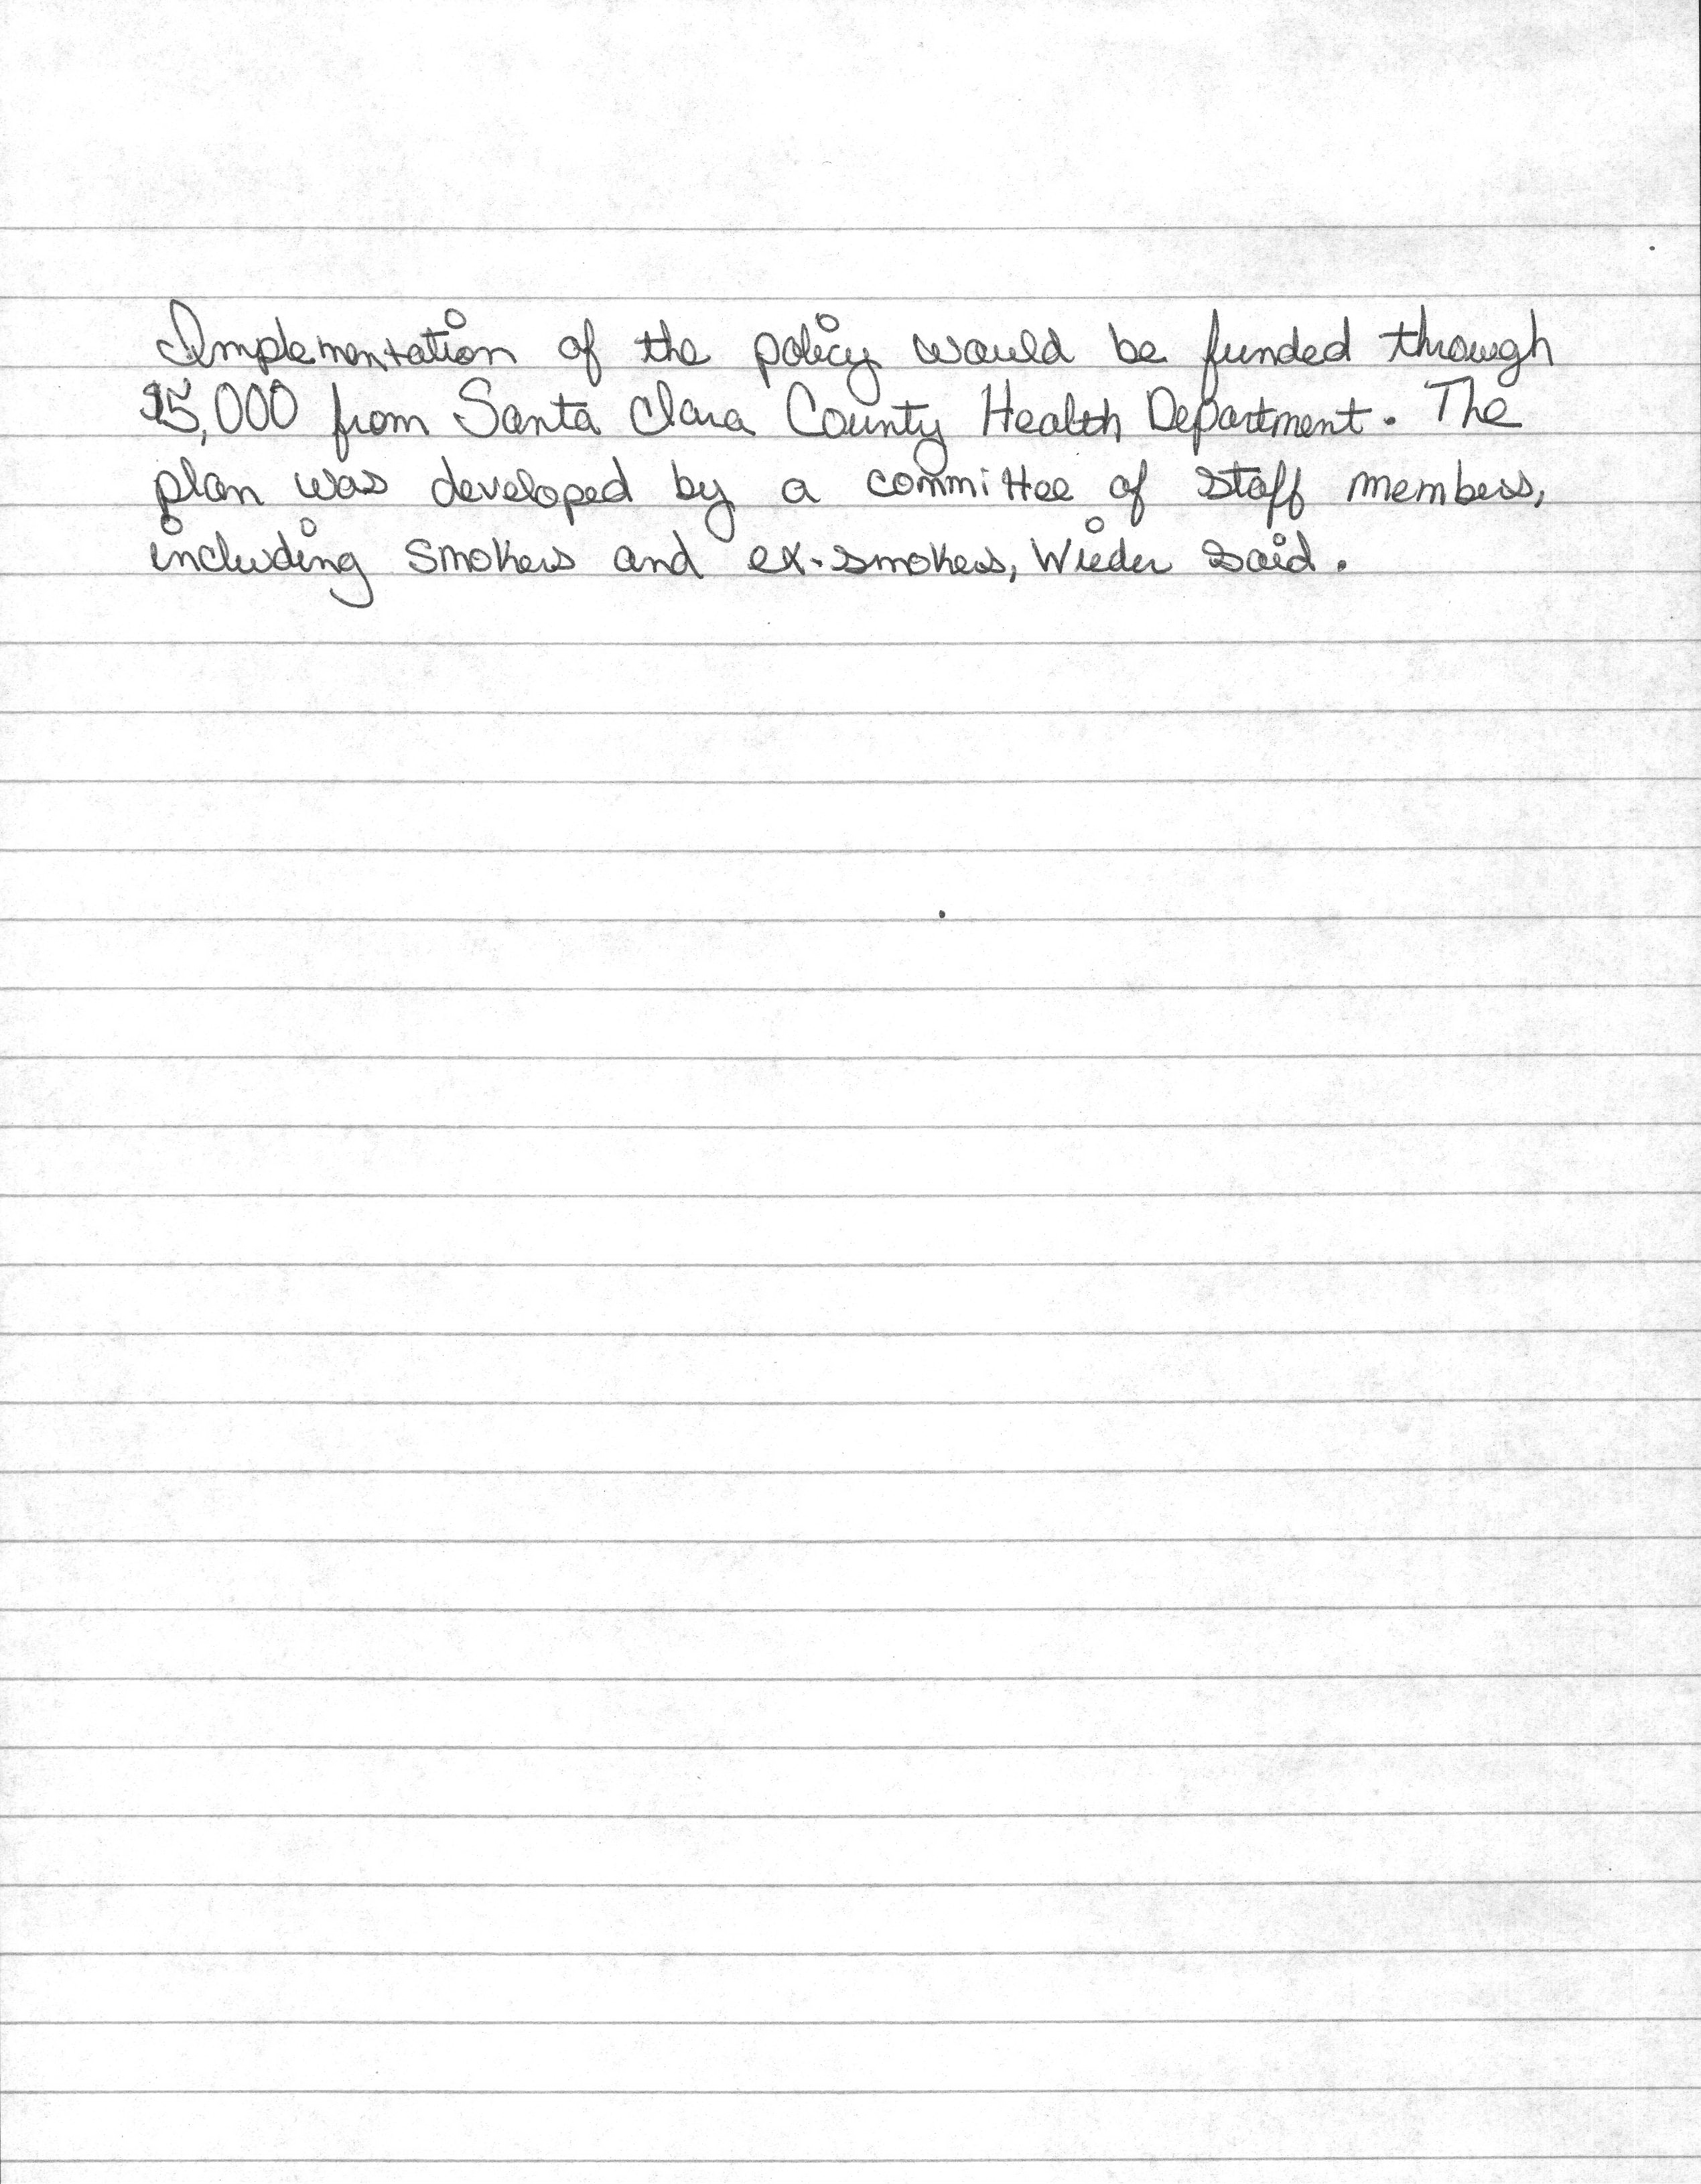 Implementation of the policy would be funded through
5,000 from Santa Clara County Health Department. The
plan was developed by a committee of staff members,
including smokers and ex-smokers, Wieder said.